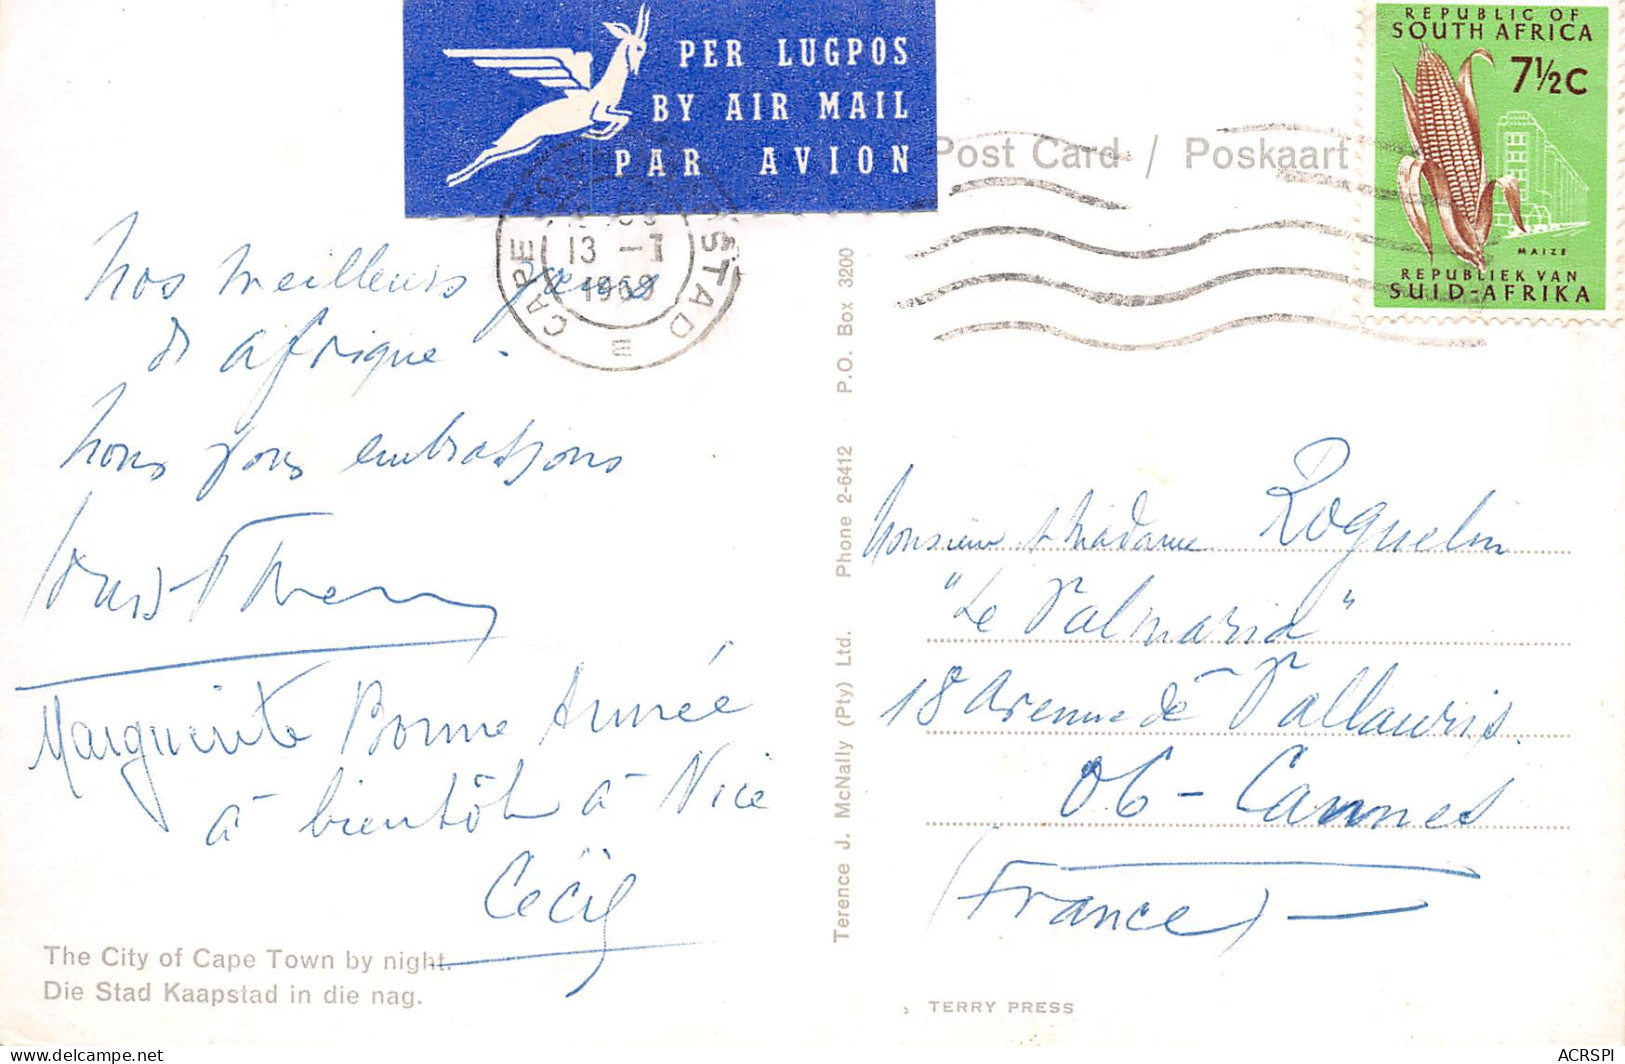 PER LUGPOS
BY AIR MAIL
PAR AVION
REPUBLIC OF
SOUTH AFRICA
7½C
MAIZE
REPUBLIEK VAN
SUID-AFRIKA
Post Card / Poskaart
CAPE
STAD
13 -
E
Nos meilleurs
d'afrique.
Nous vous embrassons
Marguerite Bonne Année
à bientôt à Nice
Cécil
The City of Cape Town by night.
Die Stad Kaapstad in die nag.
Terence J. McNally (Pty) Ltd. Phone 2-6412 P.O. Box 3200
Monsieur & Madame Roquelin
"Le Valmaria"
18 Avenue de Vallauris.
06 - Cannes
(France)
TERRY PRESS
ACRSPI